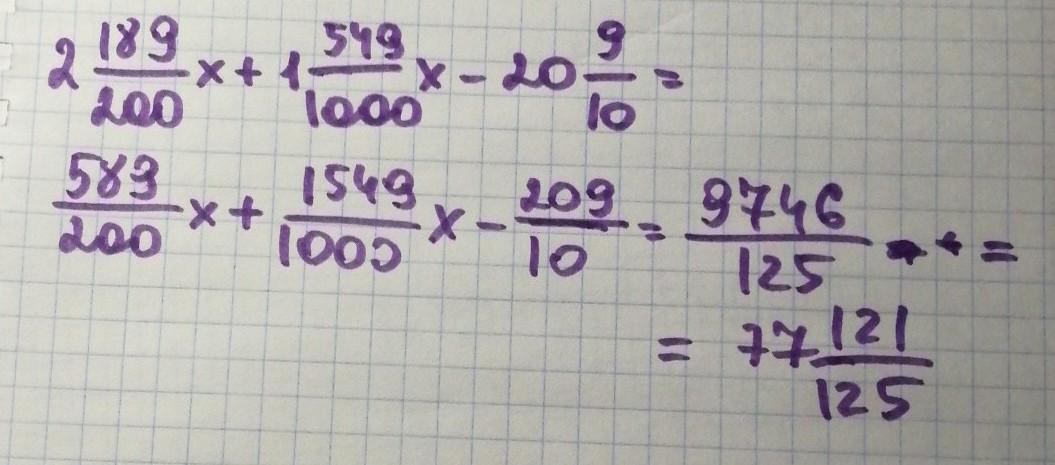 2 189/200 x + 1 549/1000 x - 20 9/10 =
589/200 x + 1549/1000 x - 209/10 = 9746/125 - + =
= 77 121/125